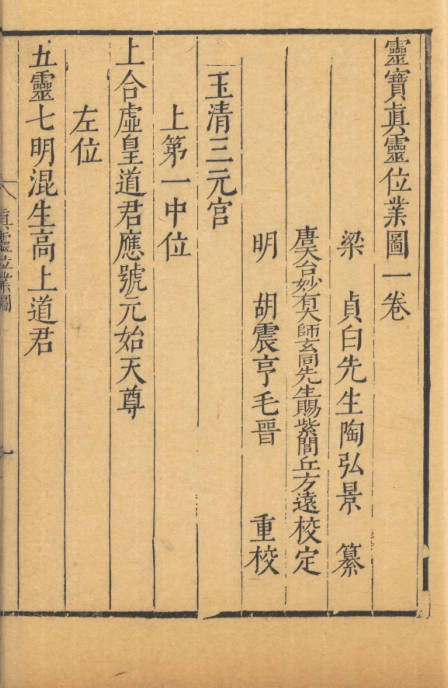 靈寶眞靈位業圖一卷
梁　貞白先生陶弘景　纂
唐天台妙有大師玄同先生賜紫閭丘方遠校定
明　胡震亨毛晉　重校
玉清三元宫
上第一中位
上合虛皇道君應號元始天尊
左位
五靈七明混生高上道君
眞靈位業圖